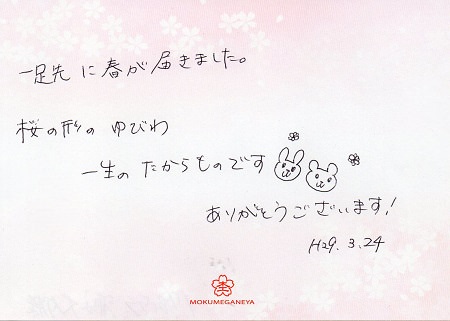 一足先に春が届きました。
桜の形の ゆびわ
一生の たからものです
ありがとうございます!
H29. 3. 24
MOKUMEGANEYA